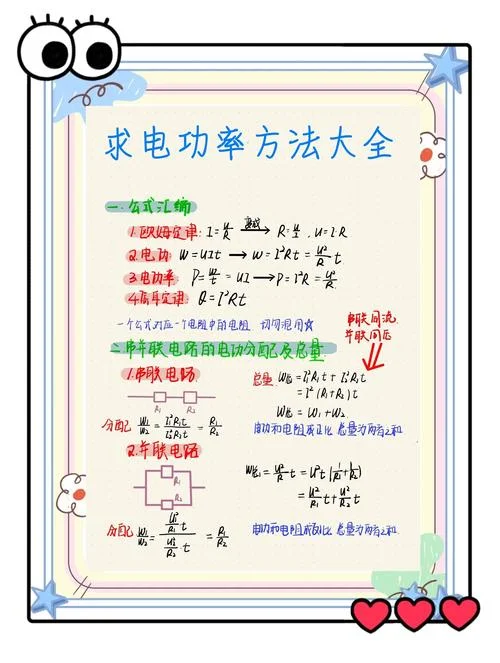 求电功率方法大全
一.公式汇编
1.欧姆定律: I=U/R → R=U/I, U=IR
2.电功 W=UIt → W=I²Rt=U²/R t
3.电功率 P=W/t=UI → P=I²R=U²/R
4.焦耳定律: Q=I²Rt
一个公式对应一个电阻中的电阻 切勿混用☆
串联同流
并联同压
二.串并联电路的电功分配及总量
1.串联电路
R₁ R₂
分配 W₁/W₂=I₁²R₁t/I₂²R₂t=R₁/R₂
总量 W总=I₁²R₁t+I₂²R₂t
=I²(R₁+R₂)t
W总=W₁+W₂
电功和电阻成正比 总量为两者之和
2.并联电路
R₁
R₂
分配 W₁/W₂=(U₁²/R₁ t)/(U₂²/R₂ t)=R₁/R₂
W总=U²/R t=U²t(1/R₁+1/R₂)
=U²/R₁ t+U²/R₂ t
电功和电阻成反比 总量为两者之和